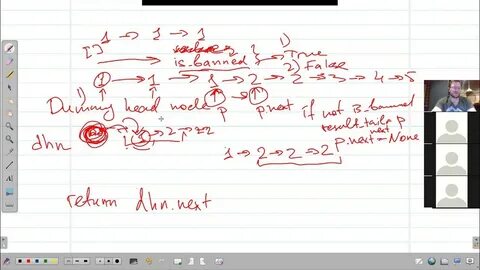 1 → 1 → 1
[]
1)
is_banned } → True
2) False
1 → 1 → 1 → 2 → 2 → 3 → 4 → 5
1)
Dummy head node p p.next if not is_banned
result_tail.next = p
p.next = None
dhn
1 → 2 → 2 → 2
return dhn.next